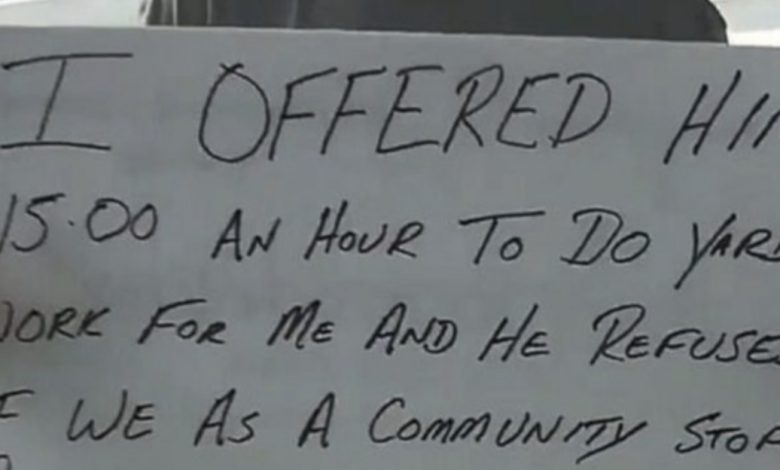 I OFFERED HI
15.00 AN HOUR TO DO YAR
ORK FOR ME AND HE REFUSE
WE AS A COMMUNITY STO